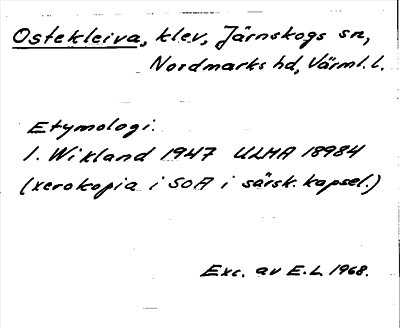 Ostekleiva, klev, Järnskogs sn,
Nordmarks hd, Värml. l.
Etymologi.
I. Wikland 1947 ULMA 18984
(xerokopia i SOA i särsk. kapsel.)
Exc. av E.L 1968.